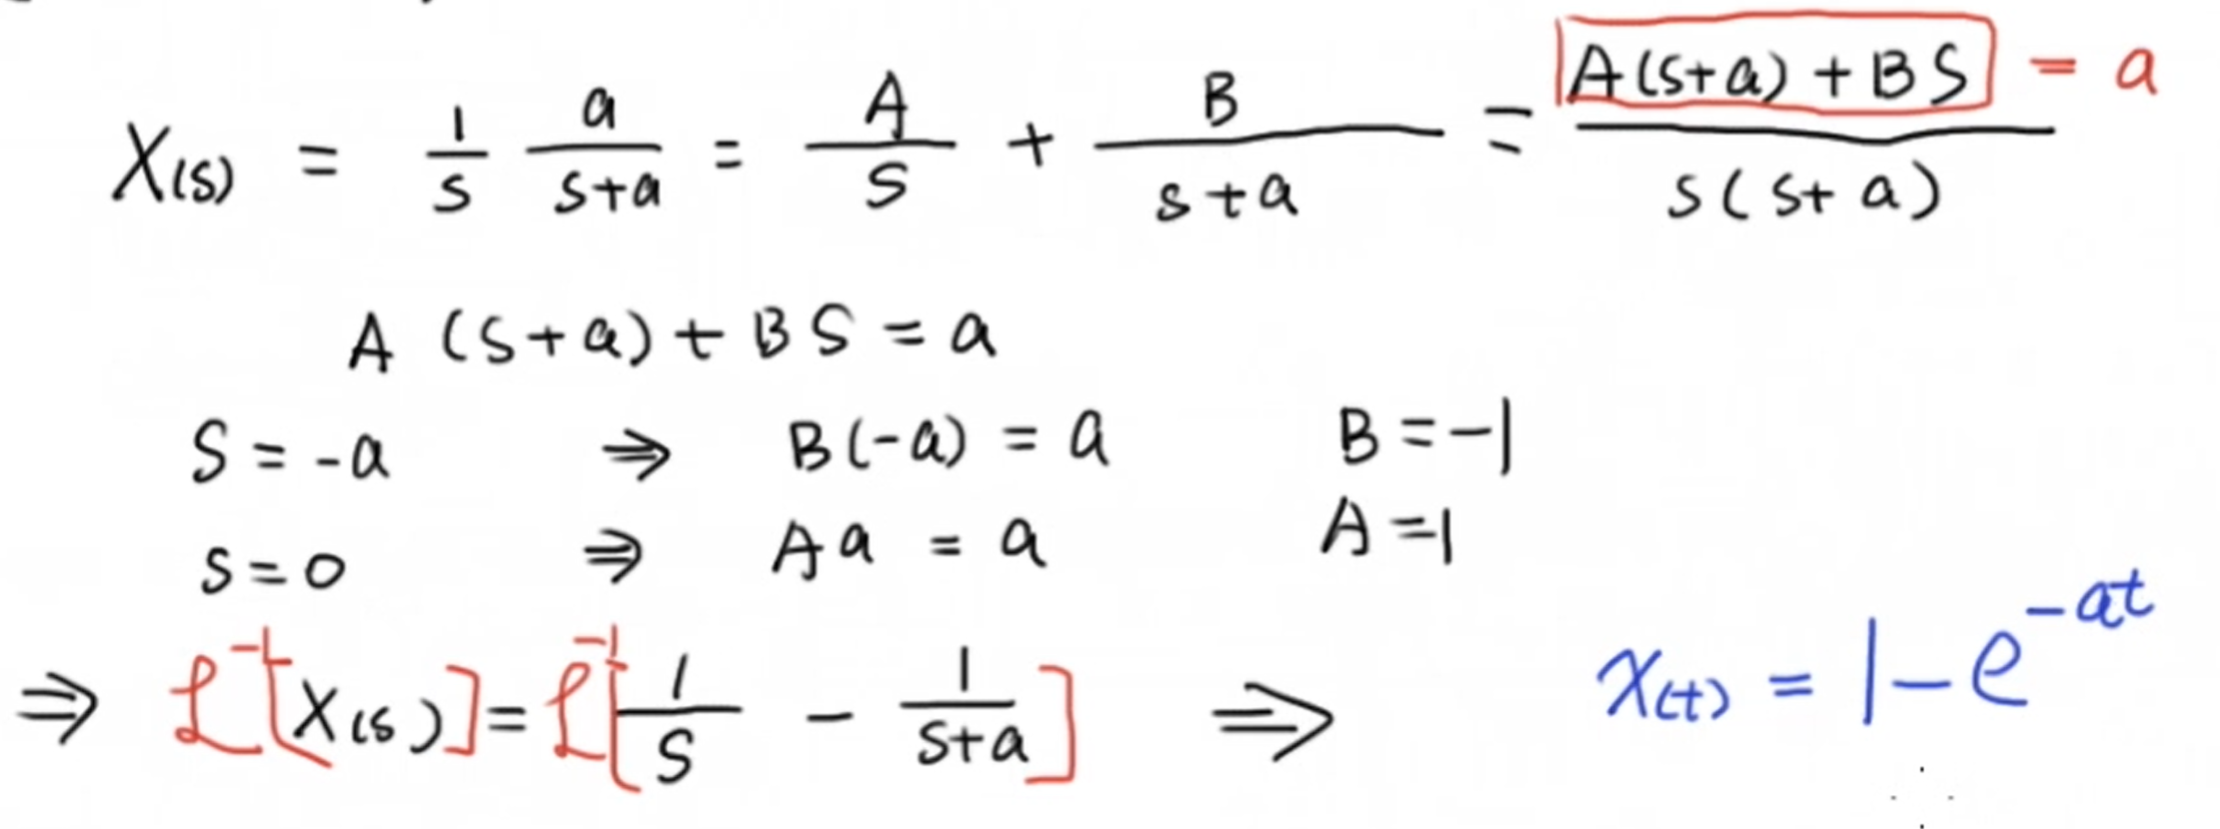 X(s) = 1/s a/(s+a) = A/s + B/(s+a) = (A(s+a) + BS)/(s(s+a)) = a
A (s+a) + BS = a
S = -a ⇒ B(-a) = a B = -1
s = 0 ⇒ Aa = a A = 1
⇒ ℒ⁻¹[X(s)] = ℒ⁻¹[1/s - 1/(s+a)] ⇒ x(t) = 1 - e^(-at)